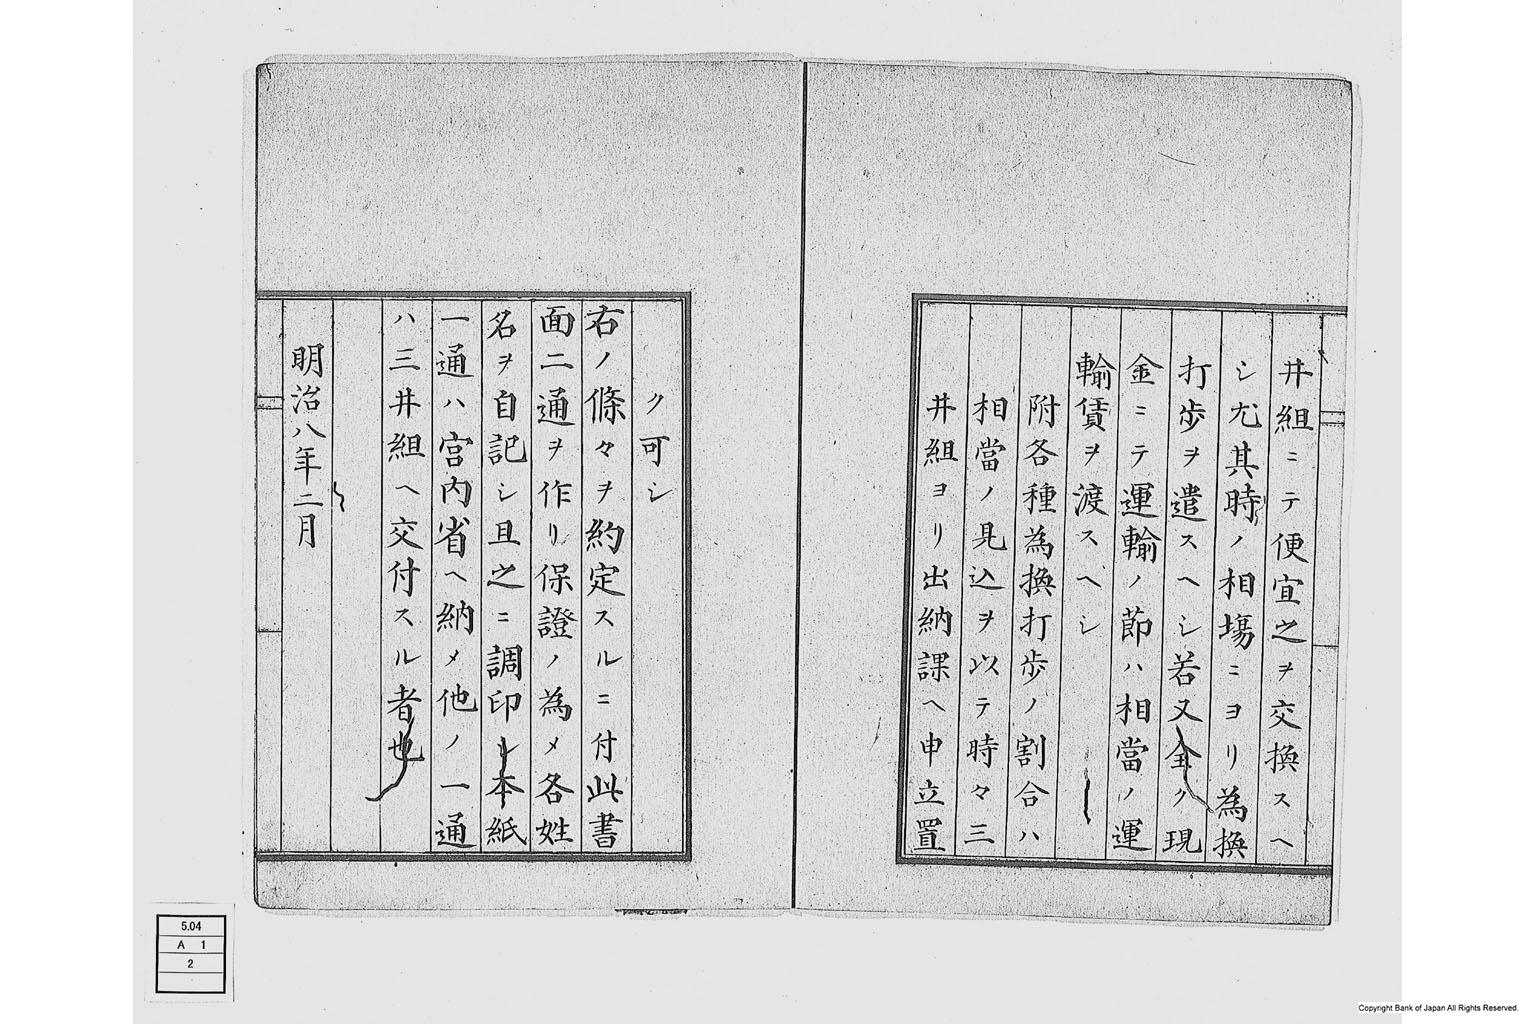 井組ニテ便宜之ヲ交換スヘ
シ尤其時ノ相塲ニヨリ為換
打歩ヲ遣スヘシ若又全ク現
金ニテ運輸ノ節ハ相當ノ運
輸賃ヲ渡スヘシ
附各種為換打歩ノ割合ハ
相當ノ見込ヲ以テ時々三
井組ヨリ出納課ヘ申立置
ク可シ
右ノ條々ヲ約定スルニ付此書
面二通ヲ作リ保證ノ為メ各姓
名ヲ自記シ且之ニ調印シ本紙
一通ハ宮内省ヘ納メ他ノ一通
ハ三井組ヘ交付スル者也
明治八年二月
5.04
A 1
2
Copyright Bank of Japan All Rights Reserved.